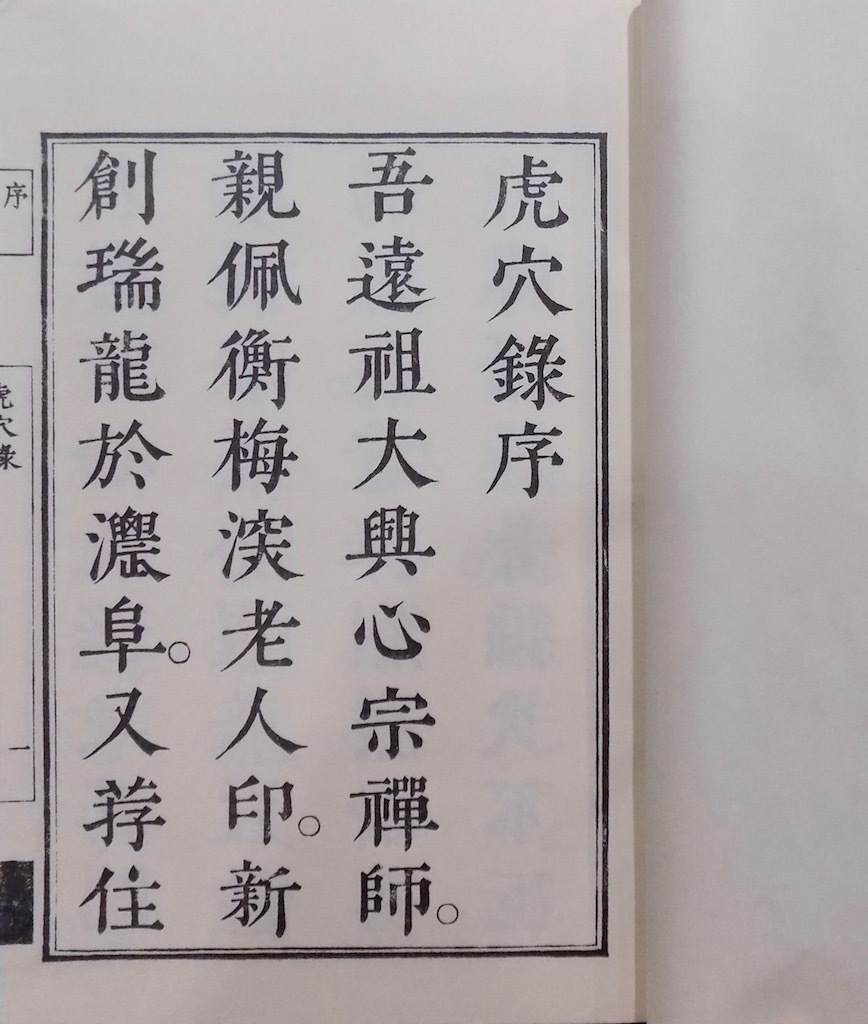 虎穴錄序
吾遠祖大興心宗禪師。
親佩衡梅深老人印。新
創瑞龍於濃阜。又荐住
序
虎穴錄
一